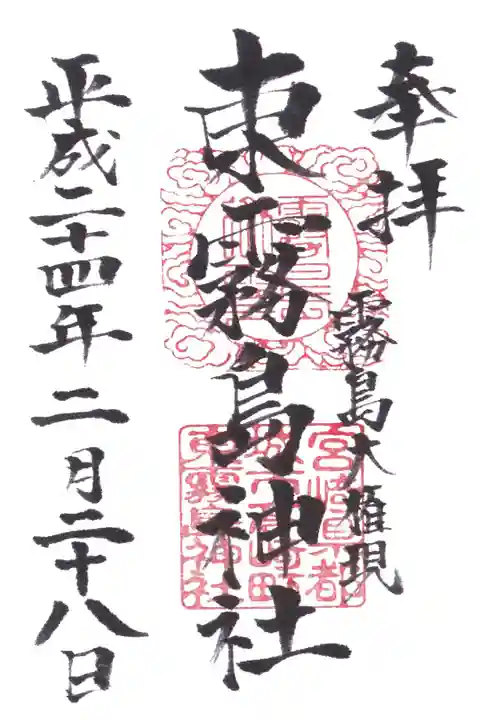 奉拝
霧島大権現
東霧島神社
宮崎県都
城市高崎町
東霧島神社
平成二十四年二月二十八日